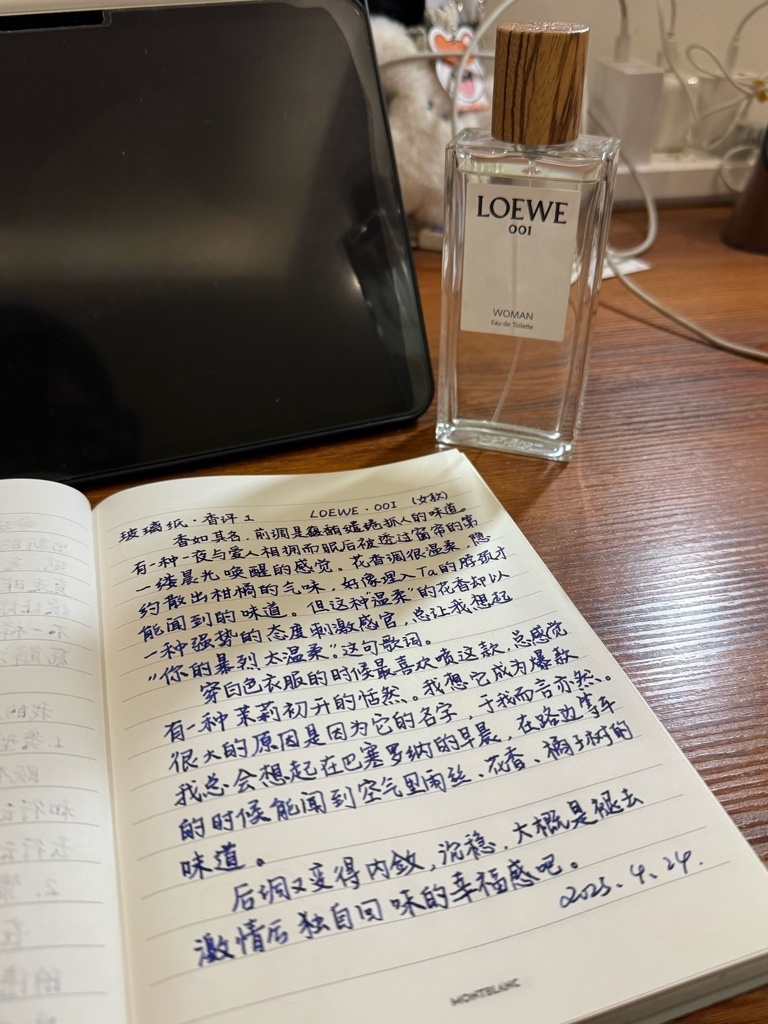 LOEWE
001
WOMAN
Eau de Toilette
玻璃纸·香评1 LOEWE·001 (女款)
香如其名，前调是缱绻抓人的味道。
有一种一夜与爱人相拥而眠后被透过窗帘的第
一缕晨光唤醒的感觉。花香调很温柔，隐
约散出柑橘的气味，好像埋入Ta的脖颈才
能闻到的味道。但这种“温柔”的花香却以
一种强势的态度刺激感官，总让我想起
“你的暴烈太温柔”这句歌词。
穿白色衣服的时候最喜欢喷这款，总感觉
有一种茉莉初开的恬然。我想它成为爆款
很大的原因是因为它的名字，于我而言亦然。
我总会想起在巴塞罗纳的早晨，在路边等车
的时候能闻到空气里雨丝、花香、橘子树的
味道。
后调又变得内敛，沉稳，大概是褪去
激情后独自回味的幸福感吧。
2025.4.24.
MONTBLANC